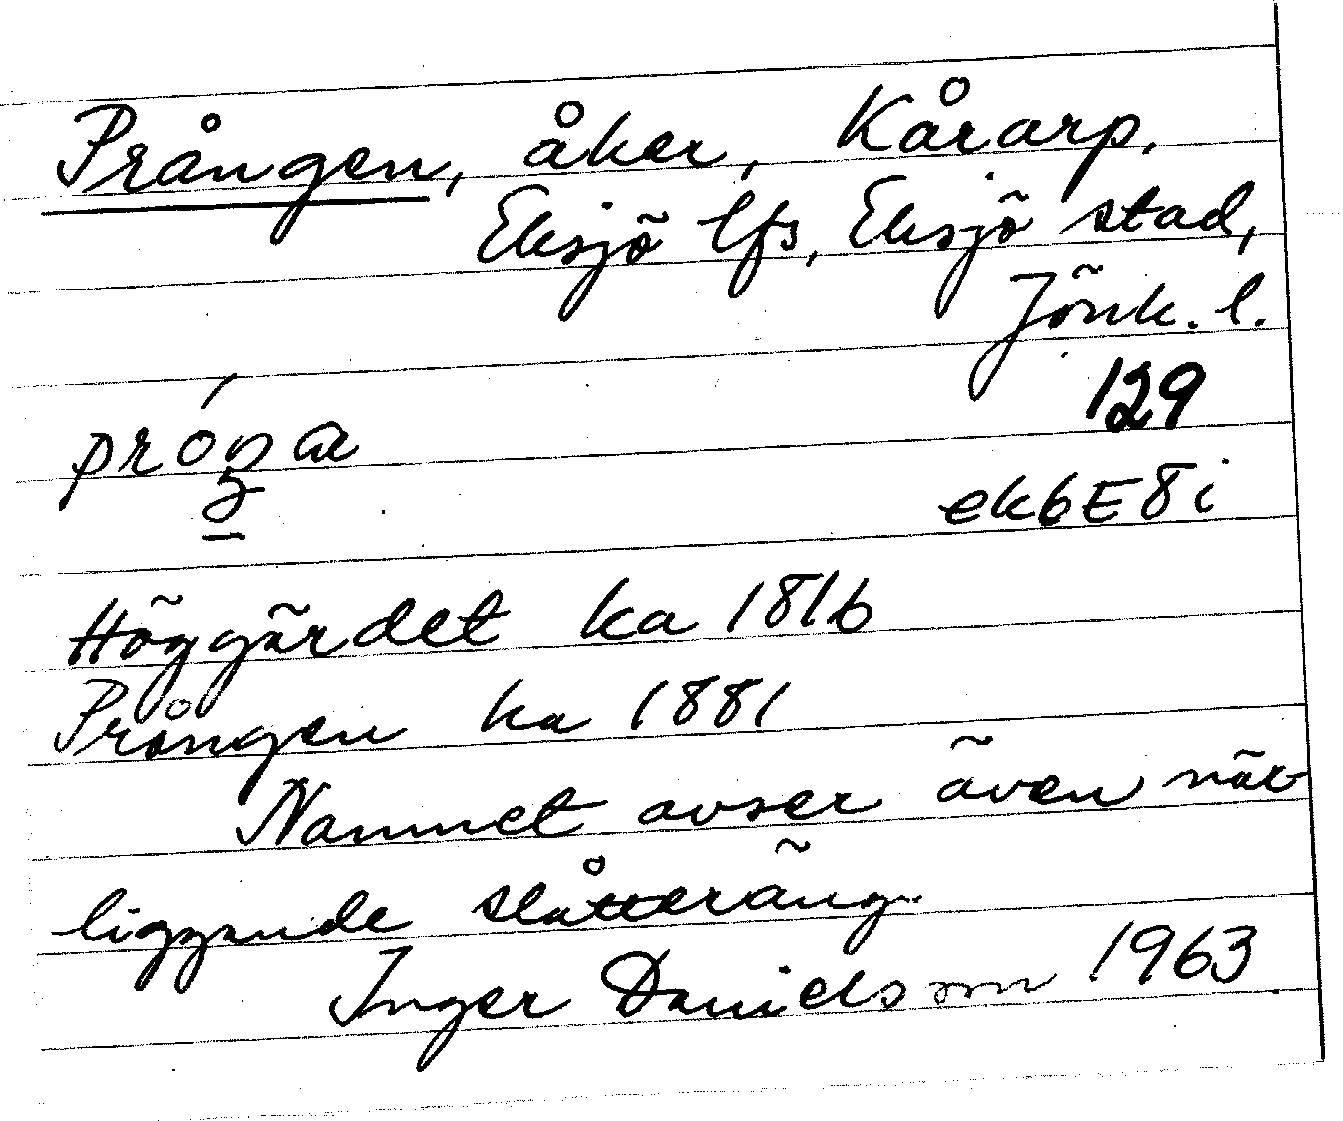 Prången, åker, Kårarp,
Eksjö lfs, Eksjö stad,
Jönk. l.
129
ek6E8i
Höggärdet ka 1816
Prången ka 1881
Namnet avser även när-
liggande slåtteräng.
Inger Danielsson 1963